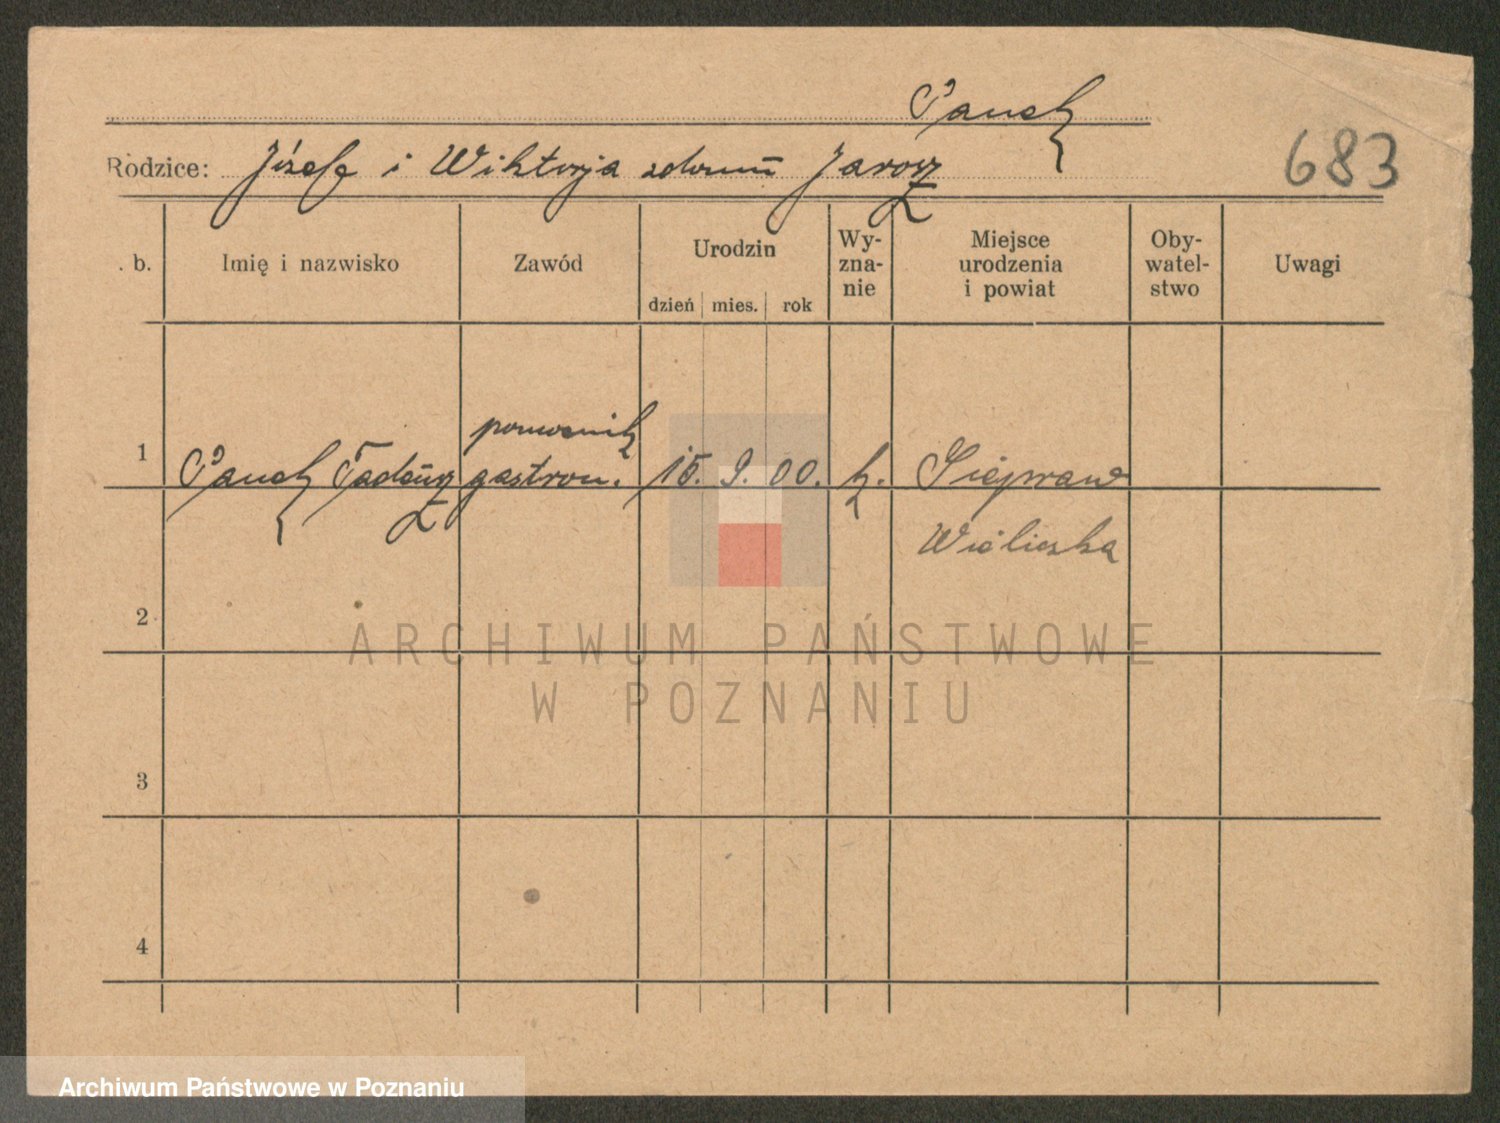 Panek
683
Rodzice: Józefa i Wiktorja z domu Jarosz
. b. Imię i nazwisko Zawód Urodzin dzień mies. rok Wy-zna-nie Miejsce urodzenia i powiat Oby-watel-stwo Uwagi
pomocnik
1 Panek Tadeusz gastron. 15. 9. 00. k. Siepraw
Wieliczka
2
ARCHIWUM PAŃSTWOWE
W POZNANIU
3
4
Archiwum Państwowe w Poznaniu